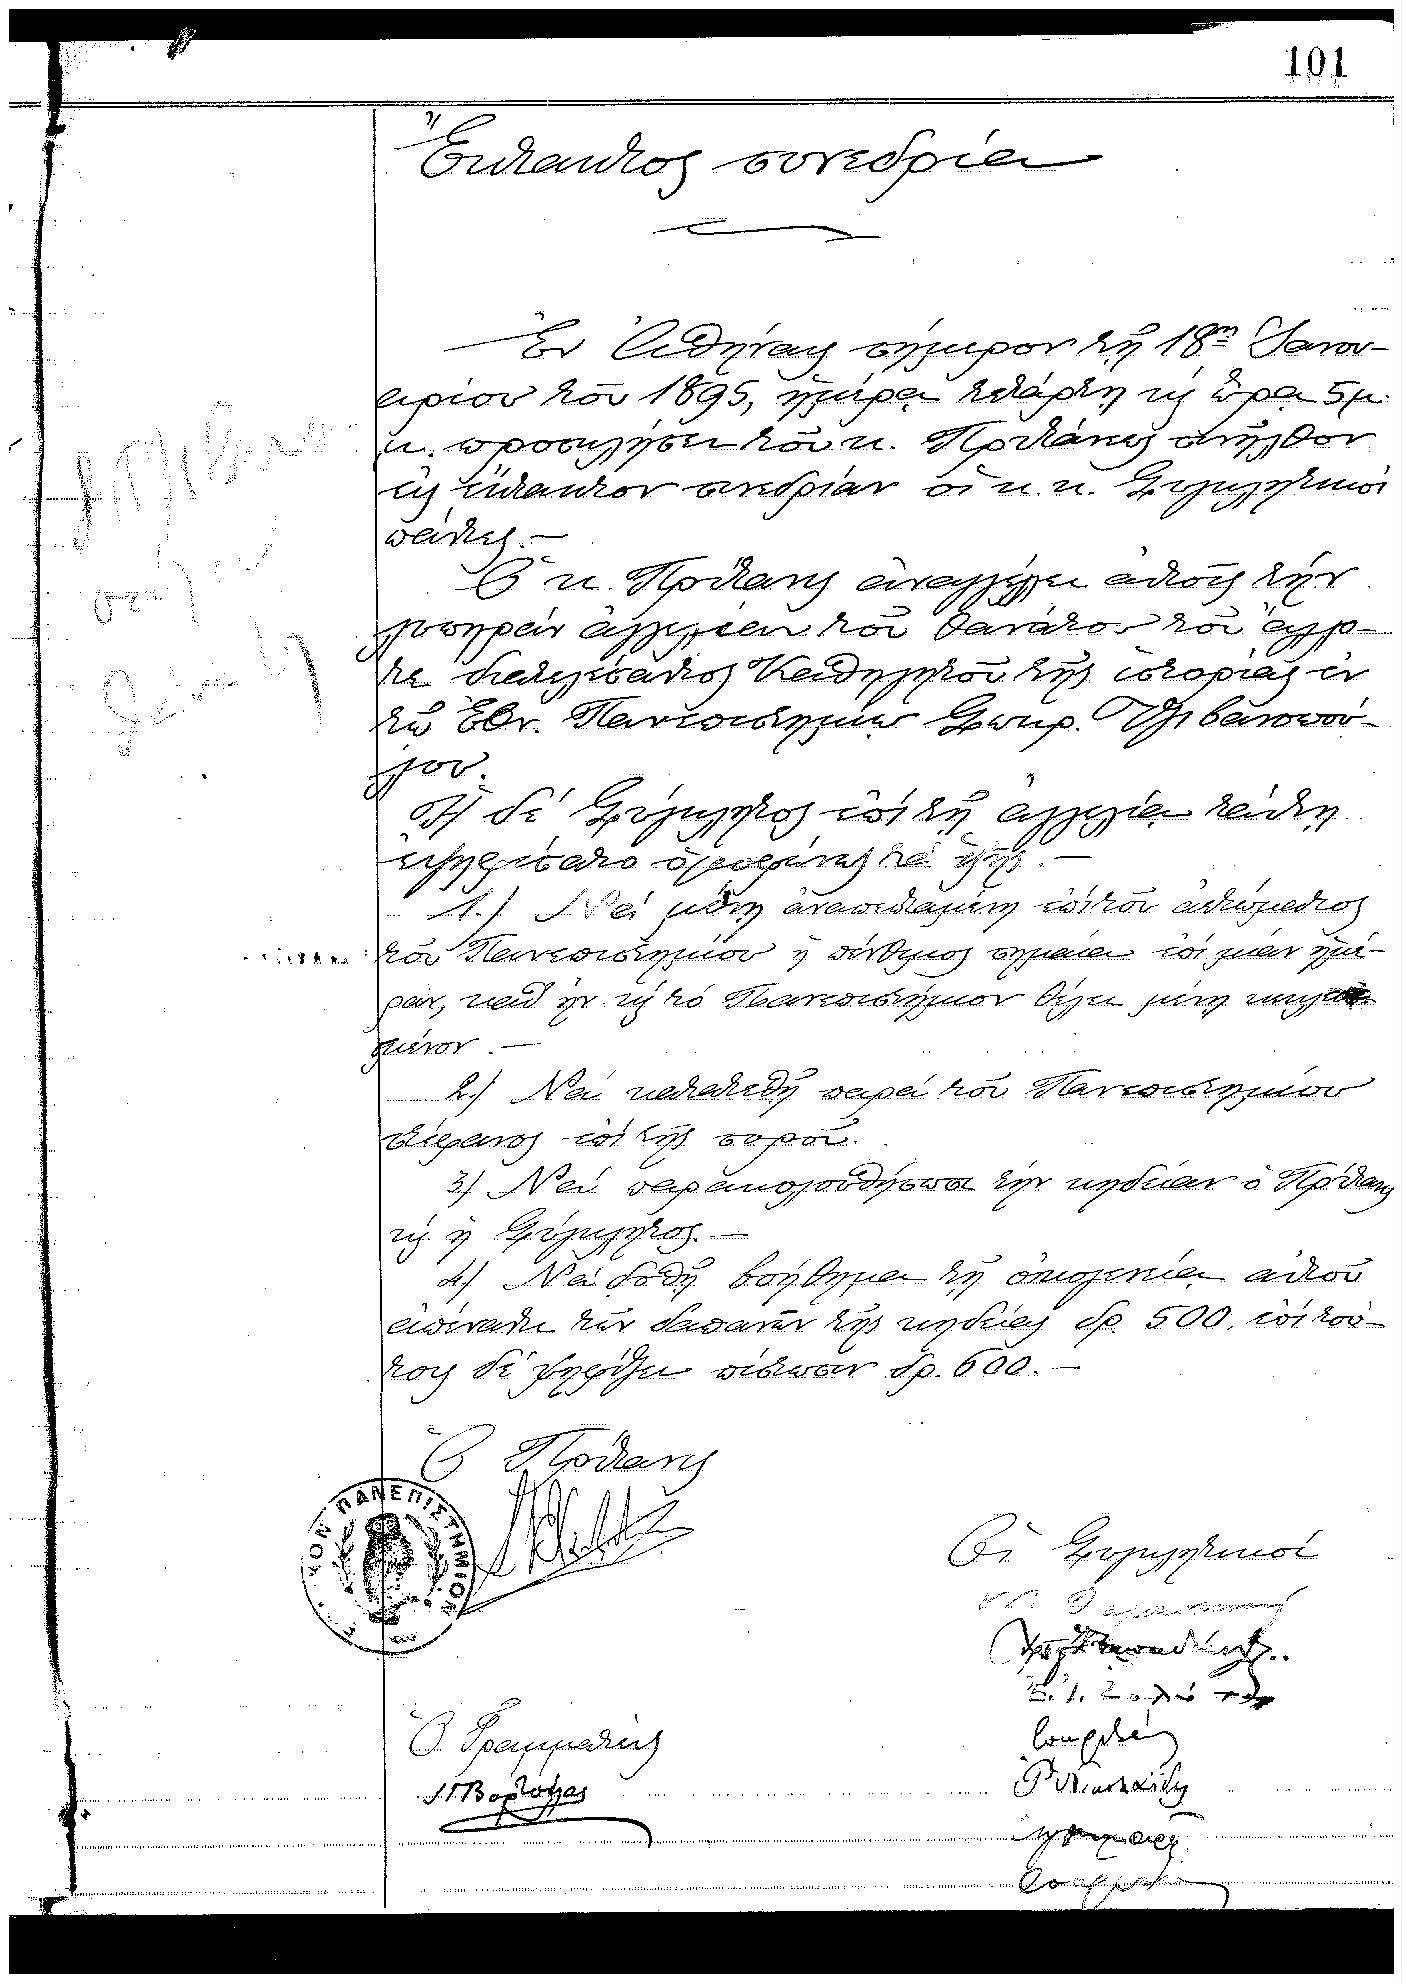 101
Ἔκτακτος συνεδρία
Ἐν Ἀθήναις σήμερον τῇ 18ῃ Ἰανου-
αρίου τοῦ 1895, ἡμέρᾳ τετάρτῃ κὶ ὥρᾳ 5 μ.
μ. προσκλήσει τοῦ κ. Πρυτάνεως συνῆλθον
εἰς ἔκτακτον συνεδρίαν οἱ κ. κ. Συγκλητικοὶ
πάντες.—
Ὁ κ. Πρύτανις ἀναγγέλλει αὐτοῖς τὴν
λυπηρὰν ἀγγελίαν τοῦ θανάτου τοῦ ἄχρι-
τε διατελέσαντος Καθηγητοῦ τῆς ἱστορίας ἐν
τῷ Ἐθν. Πανεπιστημίῳ Σωκρ. Τσιβανοπού-
λου.
Ἡ δὲ Σύγκλητος ἐπὶ τῇ ἀγγελίᾳ ταύτῃ
ἐψηφίσατο ὁμοφώνως τὰ ἑξῆς.—
1.) Νὰ μένῃ ἀναπεπταμένη ἐπὶ τοῦ ἀετώματος
τοῦ Πανεπιστημίου ἡ πένθιμος σημαία ἐπὶ μίαν ἡμέ-
ραν, καθ' ἣν κὶ τὸ Πανεπιστήμιον θέλει μένῃ κεκλει
σμένον.—
2.) Νὰ κατατεθῇ παρὰ τοῦ Πανεπιστημίου
στέφανος ἐπὶ τῆς σοροῦ.
3) Νὰ παρακολουθήσωσι τὴν κηδείαν ὁ Πρύτανις
κὶ ἡ Σύγκλητος.—
4) Νὰ δοθῇ βοήθημα τῇ οἰκογενείᾳ αὐτοῦ
ἀπέναντι τῶν δαπανῶν τῆς κηδείας δρ. 500. ἐπὶ τού-
τοις δὲ ψηφίζει πίστωσιν δρ. 600.—
Ὁ Πρύτανις
ΚΟΝ ΠΑΝΕΠΙΣΤΗΜΙΟΝ
Οἱ Συγκλητικοί
Ὁ Γραμματεύς